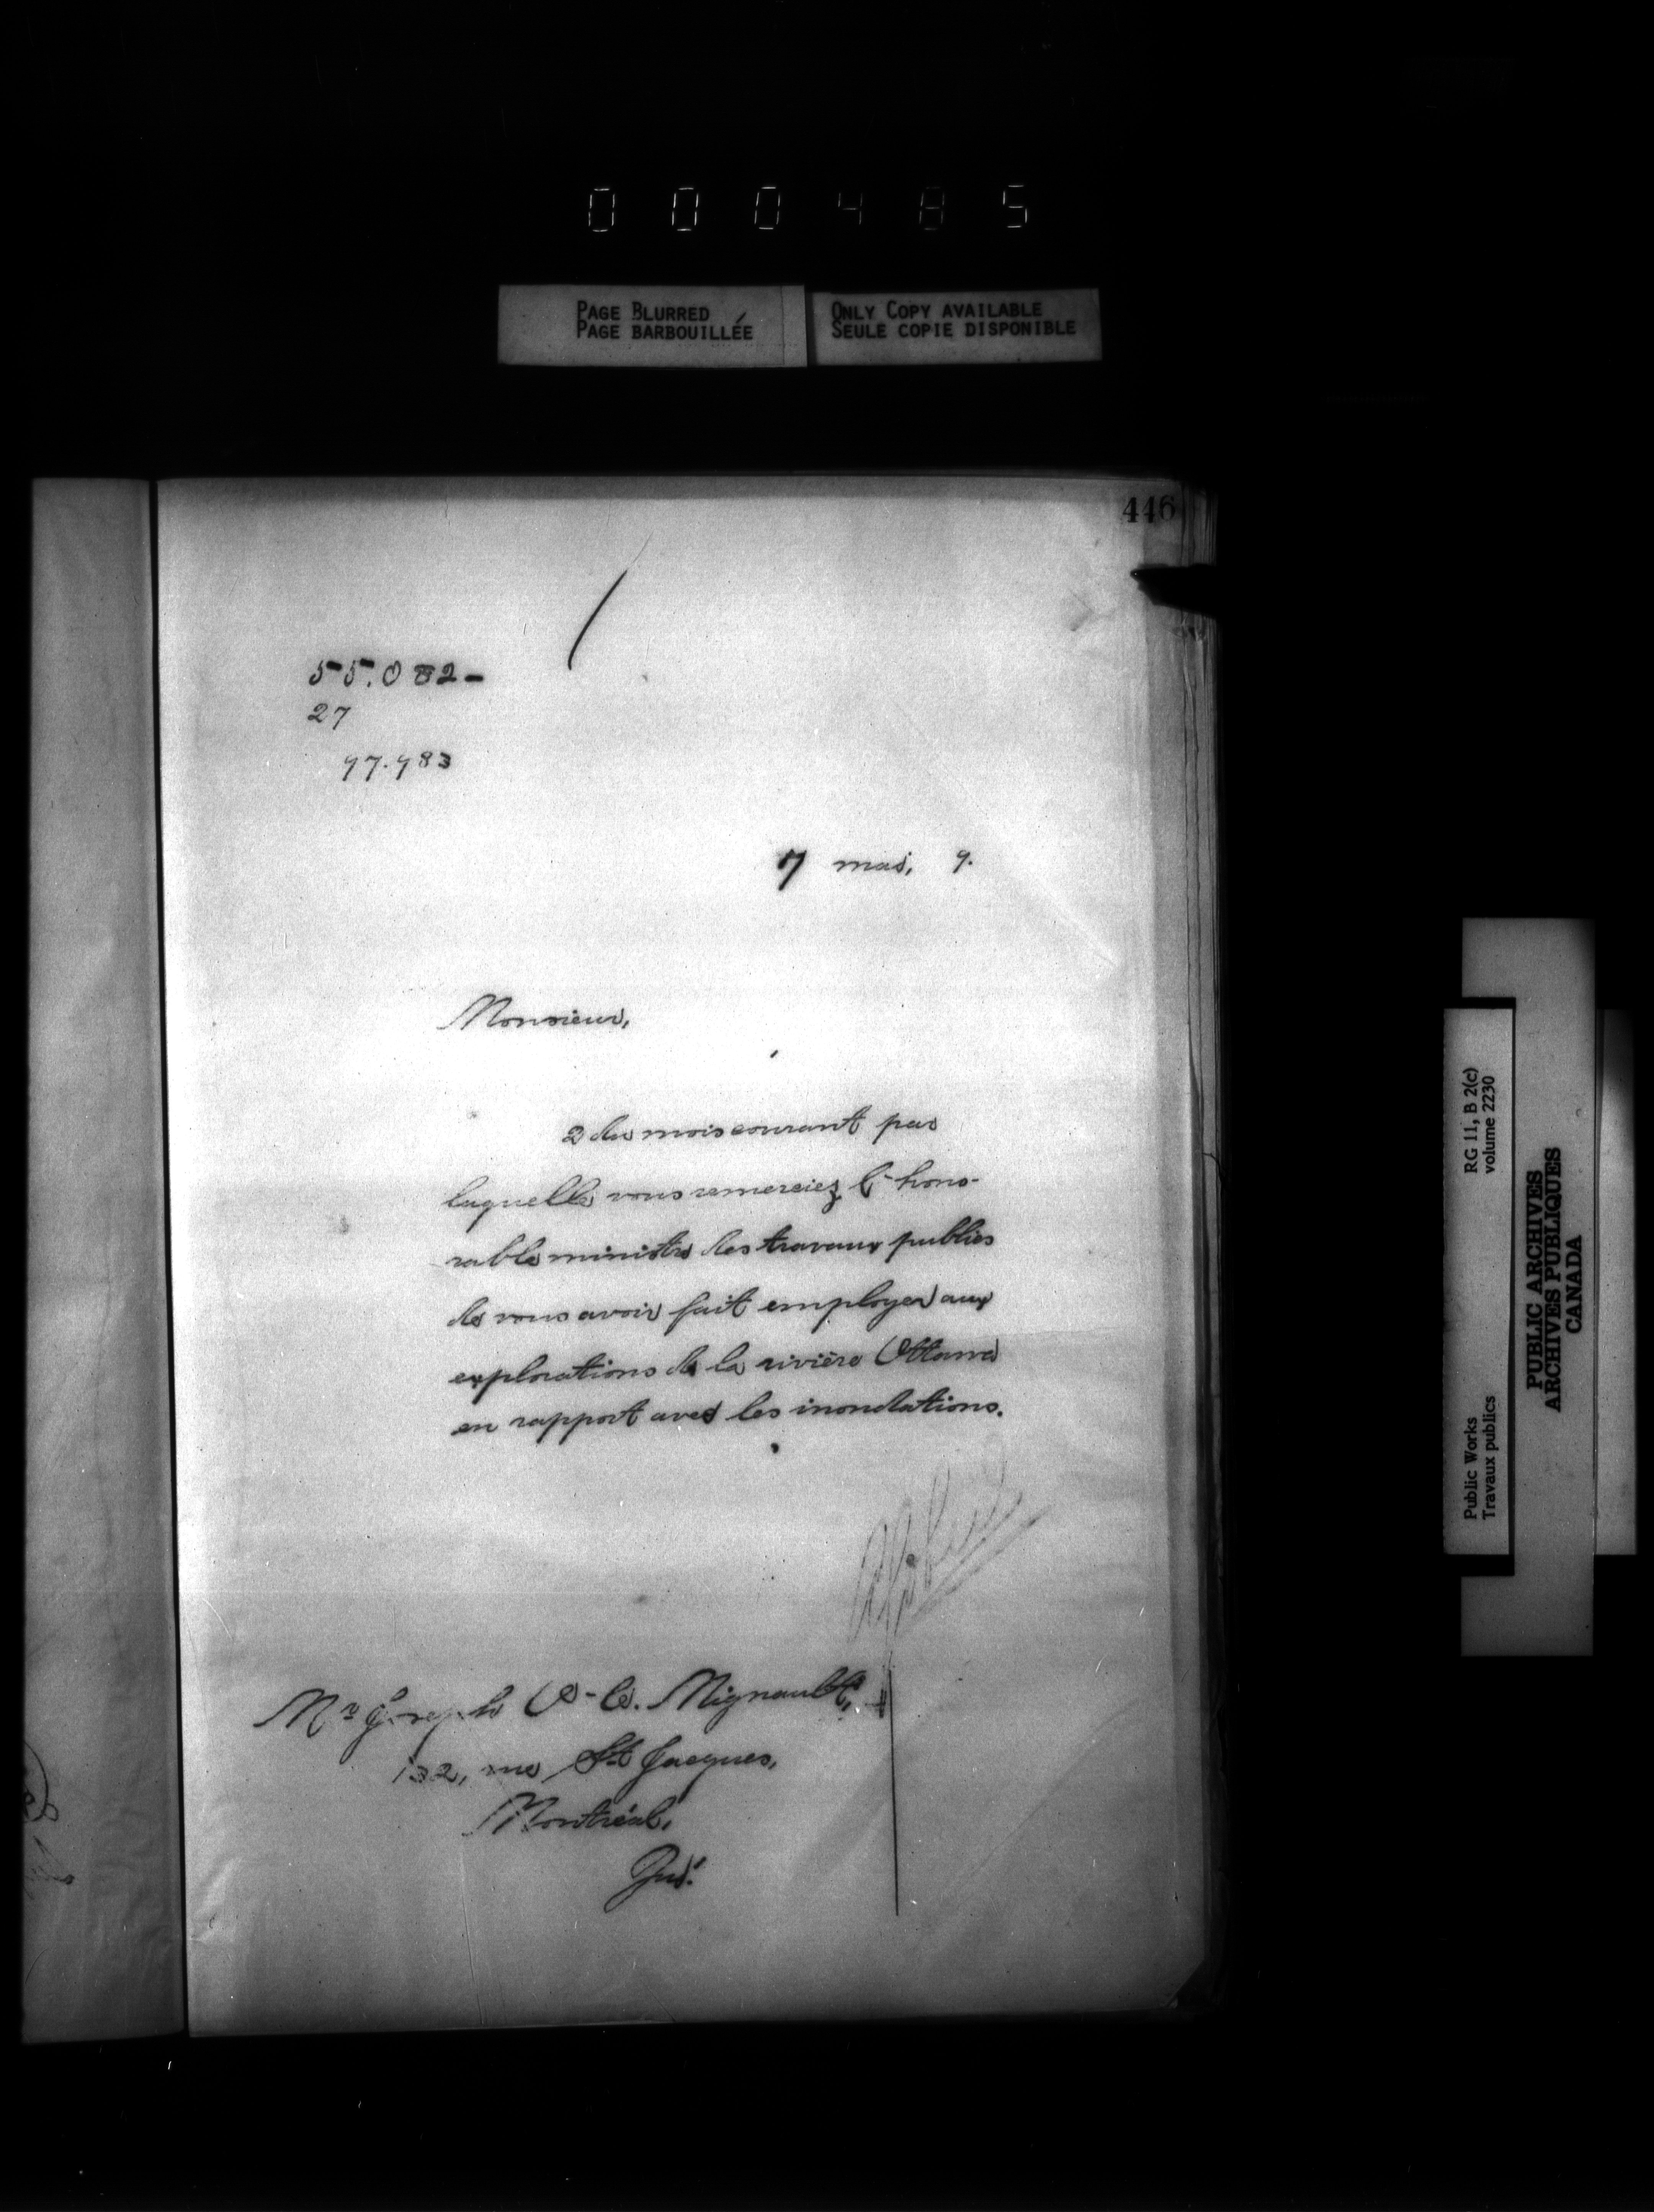 000485
PAGE BLURRED
PAGE BARBOUILLÉE
ONLY COPY AVAILABLE
SEULE COPIE DISPONIBLE
446
55.082-
27
97.983
7 mai, 9.
Monsieur,
2 du mois courant par
laquelle vous remerciez l'hono-
rable ministre des travaux publics
de vous avoir fait employer aux
explorations de la rivière Ottawa
en rapport avec les inondations.
Mr Joseph Mignault,
132, rue St Jacques,
Montréal,
Qué.
RG 11, B 2(c)
volume 2230
Public Works
Travaux publics
PUBLIC ARCHIVES
ARCHIVES PUBLIQUES
CANADA